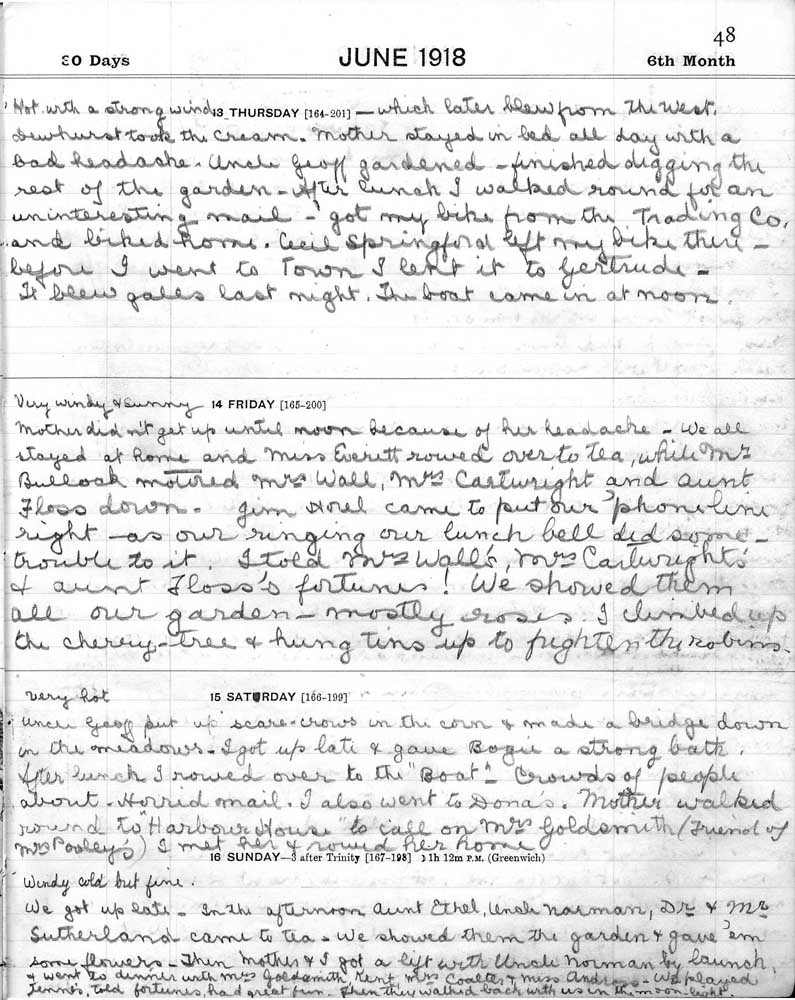 48
30 Days JUNE 1918 6th Month
Hot with a strong wind 13 THURSDAY [164-201] — which later blew from the West.
Dewhurst took the cream. Mother stayed in bed all day with a
bad headache. Uncle Geoff gardened – finished digging the
rest of the garden – After lunch I walked round for an
uninteresting mail – got my bike from the Trading Co.
and biked home. Cecil Springford left my bike there –
before I went to Town I lent it to Gertrude –
It blew gales last night. The boat came in at noon.
Very windy & sunny 14 FRIDAY [165-200]
Mother didn't get up until noon because of her headache – We all
stayed at home and Miss Everett rowed over to tea, while Mr
Bullock motored Mrs Wall, Mrs Cartwright and Aunt
Floss down. Jim Horel came to put our 'phone line
right – as our ringing our lunch bell did some –
trouble to it. I told Mrs Wall's, Mrs Cartwright's
& Aunt Floss's fortunes! We showed them
all our garden – mostly roses. I climbed up
the cherry-tree & hung tins up to frighten the robins.
Very hot 15 SATURDAY [166-199]
Uncle Geoff put up scare-crows in the corn & made a bridge down
in the meadows – I got up late & gave Bogie a strong bath.
After lunch I rowed over to the "Boat". Crowds of people
about – Horrid mail. I also went to Dona's. Mother walked
round to "Harbour House" to call on Mrs Goldsmith (Friend of
Mrs Pooley's) I met her & rowed her home
16 SUNDAY—3 after Trinity [167-198] ☽ 1h 12m P.M. (Greenwich)
Windy cold but fine.
We got up late – In the afternoon Aunt Ethel, Uncle Norman, Dr & Mrs
Sutherland came to tea – We showed them the garden & gave 'em
some flowers – Then Mother & I got a lift with Uncle Norman by launch,
& went to dinner with Mrs Goldsmith, Kent, Mrs Coalter & Miss – We played
Tennis, told fortunes, had great fun. Then they walked back with us in the moon-light